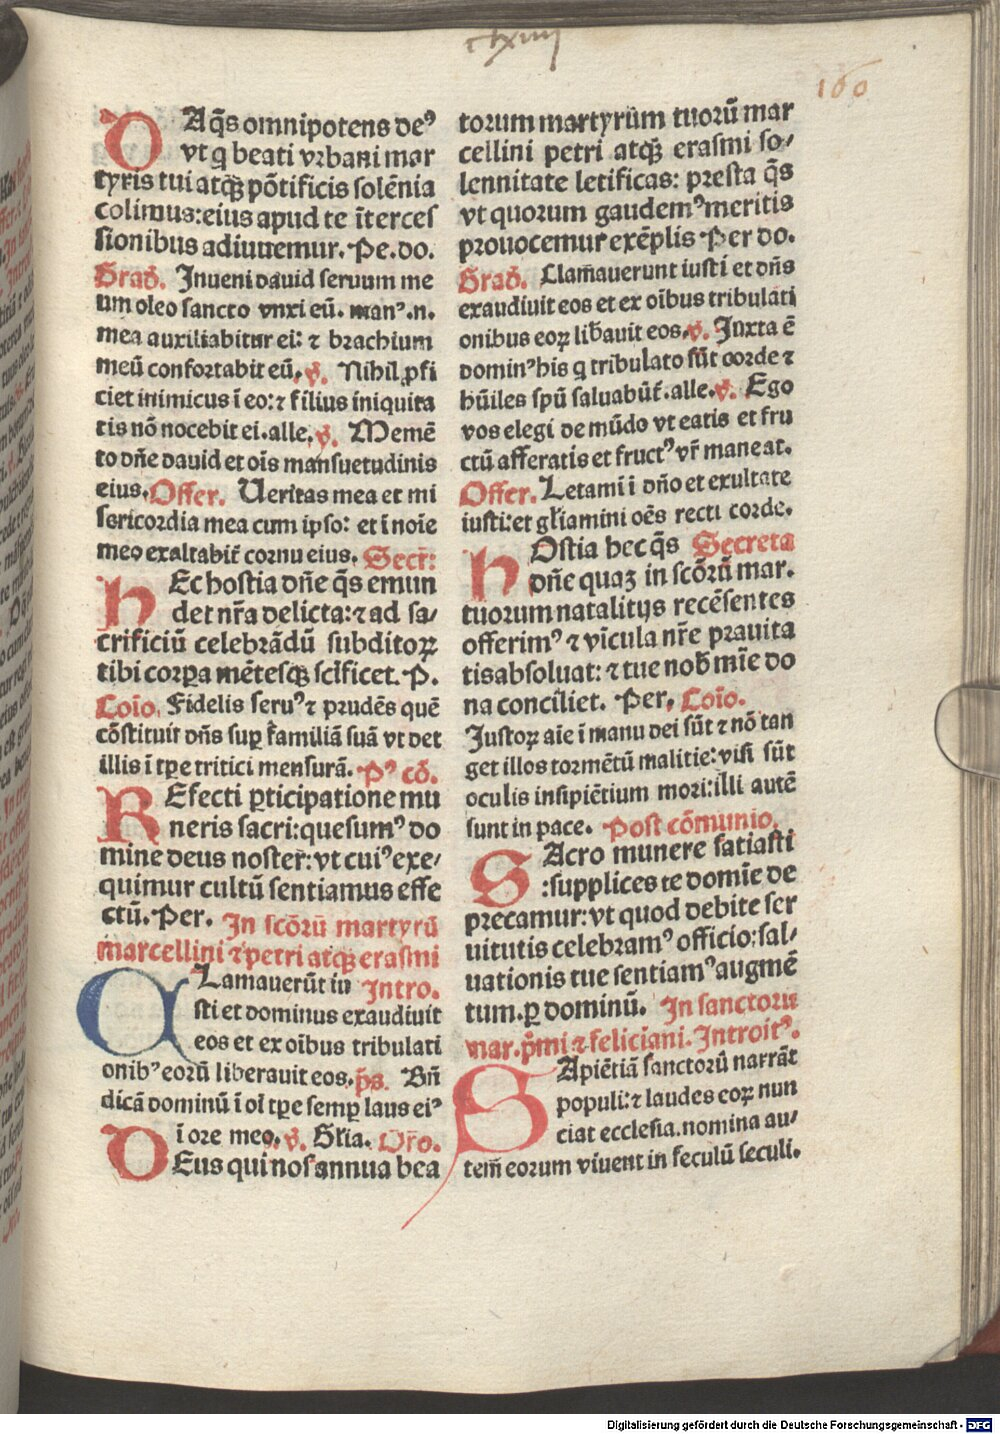 clxiiij
160
DA q̄s omnipotens deꝰ
vt q̇ beati vrbani mar
tyris tui atqꝫ põtificis solẽnia
colimus: eius apud te ĩterces
sionibus adiuuemur. Pe. do.
Grad̄. Inueni dauid seruum me
um oleo sancto vnxi eũ. manꝰ .n.
mea auxiliabitur ei: ⁊ brachium
meũ confortabit eũ. v̄. Nihil ꝓfi
ciet inimicus ĩ eo: ⁊ filius iniquita
tis nõ nocebit ei. alle. v̄. Memẽ
to dñe dauid et oĩs mansuetudinis
eius. Offer. Ueritas mea et mi
sericordia mea cum ipso: et ĩ noĩe
meo exaltabit̄ cornu eius. Secr̄:
HEc hostia dñe q̄s emun
det nr̄a delicta: ⁊ ad sa⸗
crificiũ celebrãdũ subditoꝝ
tibi corꝑa mẽtesqꝫ sc̄ificet. P.
Coĩo. Fidelis seruꝰ ⁊ prudẽs quẽ
cõstituit dñs suꝑ familiã suã vt det
illis ĩ tꝑe tritici mensurã. Pꝰ cõ.
REfecti ꝑticipatione mu
neris sacri: quesumꝰ do
mine deus noster: vt cuiꝰ exe⸗
quimur cultũ sentiamus effe
ctũ. Per. In scõrũ martyrũ
marcellini ⁊ petri atqꝫ erasmi
CLamauerũt iu Intro.
sti et dominus exaudiuit
eos et ex oĩbus tribulati
onibꝰ eorũ liberauit eos. p̄s. Bñ
dicã dominũ ĩ oĩ tꝑe semꝑ laus eiꝰ
ĩ ore meo. v̄. Gl̄ia. Or̄o.
DEus qui nos annua bea
torum martyrum tuorũ mar
cellini petri atqꝫ erasmi so⸗
lennitate letificas: presta q̄s
vt quorum gaudemꝰ meritis
prouocemur exẽplis Per do.
Grad̄. Clamauerunt iusti et dñs
exaudiuit eos et ex oĩbus tribulati
onibus eoꝝ lib̄auit eos. v̄. Iuxta ẽ
dominꝰ his q̇ tribulato sũt corde ⁊
hũiles spũ saluabũt̄. alle. v̄. Ego
vos elegi de mũdo vt eatis et fru
ctũ afferatis et fructꝰ vr̄ maneat.
Offer. Letamĩ ĩ dño et exultate
iusti: et gl̄iamini oẽs recti corde.
HOstia hec q̄s Secreta
dñe quaꝫ in scõrũ mar.
tuorum natalitijs recẽsentes
offerimꝰ ⁊ vĩcula nr̄e prauita
tis absoluat: ⁊ tue nob̄ mĩe do
na conciliet. Per. Coĩo.
Iustoꝝ aĩe ĩ manu dei sũt ⁊ nõ tan
get illos tormẽtũ malitie: visi sũt
oculis insipiẽtium mori: illi autẽ
sunt in pace. Post cõmunio.
SAcro munere satiasti
: supplices te domĩe de
precamur: vt quod debite ser
uitutis celebramꝰ officio: sal⸗
uationis tue sentiamꝰ augmẽ
tum. ꝑ dominũ. In sanctorũ
mar. p̄mi ⁊ feliciani. Introitꝰ.
SApiẽtiã sanctorũ narrãt
populi: ⁊ laudes eoꝝ nun
ciat ecclesia. nomina au⸗
tem̄ eorum viuent in seculũ seculi.
Digitalisierung gefördert durch die Deutsche Forschungsgemeinschaft - DFG